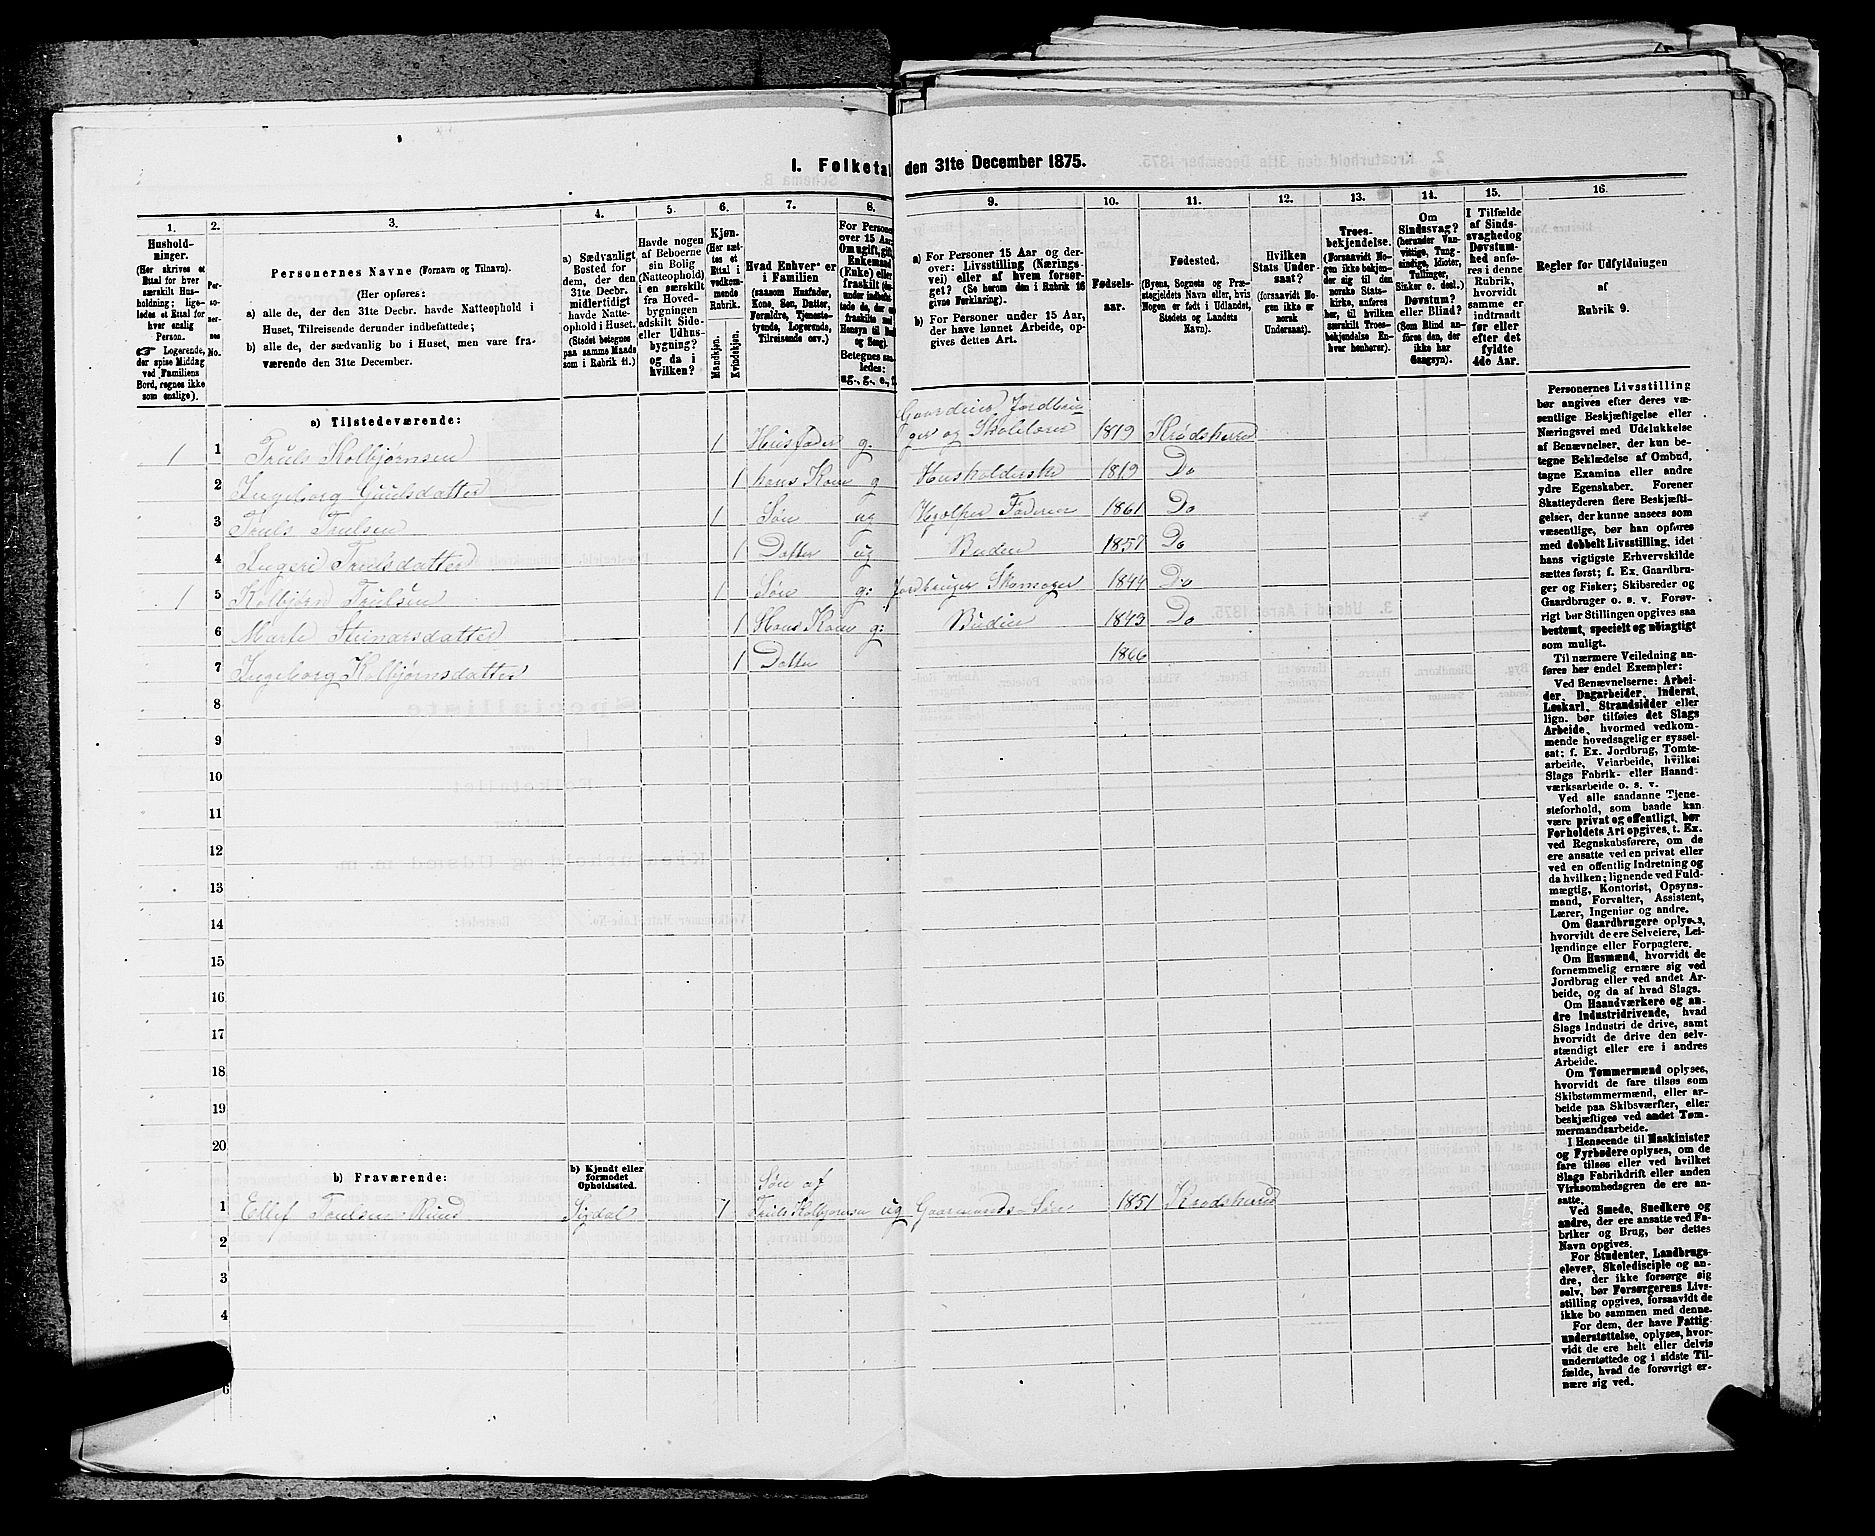 I. Folketal den 31te December 1875.
1. 2. 3. 4. 5. 6. 7. 8. 9. 10. 11. 12. 13. 14. 15. 16.
Hushold-
ninger.
(Her skrives et
Ettal for hver
særskilt Hus-
holdning; lige-
ledes et Ettal for
hver enslig
Person.
☞ Logerende,
der spise Middag
ved Familiens
Bord, regnes ikke
som enslige).
Per-
so-
ner-
nes
No.
Personernes Navne (Fornavn og Tilnavn).
(Her opføres:
a) alle de, der den 31te Decbr. havde Natteophold i
Huset, Tilreisende derunder indbefattede;
b) alle de, der sædvanlig bo i Huset, men vare fra-
værende den 31te December.
a) Sædvanligt
Bosted for
dem, der den
31te Decbr.
midlertidigt
havde Natte-
ophold i Huset.
(Stedet betegnes
paa samme Maade
som i Rubrik 11.)
Havde nogen
af Beboerne
sin Bolig
(Natteophold)
i en særskilt
fra Hoved-
bygningen
adskilt Side-
eller Udhus-
bygning?
og da i
hvilken?
Kjøn.
(Her sæt-
tes et
Ettal i
vedkom-
mende
Rubrik.
Mandkjøn.
Kvindekjøn.
Hvad Enhver er
i Familien
(saasom Husfader,
Kone, Søn, Datter,
Forældre, Tjeneste-
tyende, Logerende,
Tilreisende osv.)
For Personer
over 15 Aar:
Om ugift, gift,
Enkemand
(Enke) eller
fraskilt
Betegnes saa-
ledes:
ug., g., e., f.
a) For Personer 15 Aar og der-
over: Livsstilling (Nærings-
vei) eller af hvem forsør-
get? (Se herom den i Rubrik 16
givne Forklaring).
b) For Personer under 15 Aar,
der have lønnet Arbeide, op-
gives dettes Art.
Fødsels-
aar.
Fødested.
(Byens, Sognets og Præ-
stegjeldets Navn eller, hvis
Nogen er født i Udlandet,
Stedets og Landets
Navn).
Hvilken
Stats Under-
saat?
(forsaavidt No-
gen ikke er
norsk
Undersaat).
Troes-
bekjendelse.
(Forsaavidt No-
gen ikke bekjen-
der sig til den
norske Stats-
kirke, anføres
her, til hvilken
særskilt Troes-
bekjendelse En-
hver henhører).
Om
Sindssvag?
(herunder Van-
vittige, Tung-
sindige, Idioter,
Tullinger,
Sinker o. desl.)
Døvstum?
eller Blind?
(Som Blind an-
føres den, der
ikke har
Gangsyn).
I Tilfælde
af Sinds-
svaghed og
Døvstum-
hed anfø-
res i denne
Rubrik,
hvorvidt
samme er
indtraadt
før eller
efter det
fyldte
4de Aar.
Regler for Udfyldningen
af
Rubrik 9.
a) Tilstedeværende:
1 1 Truls Kolbjørnsen 1 Husfader g. Gaardeier Jordbru-
ger og Skolelærer 1819 Krødsherred
2 Ingeborg Gunlsdatter 1 hans Kone g Husholderske 1819 Do
3 Truls Trulsen 1 Søn ug Hjælper Faderen 1861 Do
4 Ingeri Trulsdatter 1 Datter ug Budeie 1857 Do
1 5 Kolbjørn Trulsen 1 Søn g: Jordbruger Skomager 1844 Do
6 Marte Steinarsdatter 1 Hans Kone g: Budeie 1843 Do
7 Ingeborg Kolbjørnsdatter 1 Datter 1866
8
9
10
11
12
13
14
15
16
17
18
19
20
b) Fraværende:
b) Kjendt eller
formodet
Opholdssted.
1 Ellef Trulsen Ruud Sigdal 1 Søn af
Truls Kolbjørnsen ug Gaarmands-Søn 1851 Krødsherred
2
3
4
6
Personernes Livsstilling
bør angives efter deres væ-
sentlige Beskjæftigelse eller
Næringsvei med Udelukkelse
af Benævnelser, der kun be-
tegne Beklædelse af Ombud,
tagne Examina eller andre
ydre Egenskaber. Forener
Skatteyderen flere Beskjæfti-
gelser, der kunne ansees som
væsentlige, bør han opføres
med dobbelt Livsstilling, idet
hans vigtigste Erhvervskilde
sættes først; f. Ex. Gaardbru-
ger og Fisker; Skibsreder og
Gaardbruger o. s. v. Forøv-
rigt bør Stillingen opgives saa
bestemt, specielt og nøiagtigt
som muligt.
Til nærmere Veiledning an-
føres her endel Exempler:
Ved Benævnelserne: Arbei-
der, Dagarbeider, Inderst,
Løskarl, Strandsidder eller
lign. bør tilføies det Slags
Arbeide, hvormed vedkom-
mende hovedsagelig er syssel-
sat; f. Ex. Jordbrug, Tomte-
arbeide, Veiarbeide, hvilket
Slags Fabrik- eller Haand-
værksarbeide o. s. v.
Ved alle saadanne Tjene-
steforhold, som baade kan
være privat og offentligt, bør
Forholdets Art opgives, t. Ex.
ved Regnskabsførere, om de
ere ansatte ved en privat eller
ved en offentlig Indretning og
da hvilken; lignende ved Fuld-
mægtig, Kontorist, Opsyns-
mand, Forvalter, Assistent,
Lærer, Ingeniør og andre.
Om Gaardbrugere oplyses,
hvorvidt de ere Selveiere, Lei-
lændinge eller Forpagtere.
Om Husmænd, hvorvidt de
fornemmelig ernære sig ved
Jordbrug eller ved andet Ar-
beide, og da af hvad Slags.
Om Haandværkere og an-
dre Industridrivende, hvad
Slags Industri de drive, samt
hvorvidt de drive den selv-
stændigt eller ere i andres
Arbeide.
Om Tømmermænd oplyses,
hvorvidt de fare tilsøs som
Skibstømmermænd, eller ar-
beide paa Skibsværfter, eller
beskjæftiges ved andet Tøm-
mermandsarbeide.
I Henseende til Maskinister
og Fyrbødere oplyses, om de
fare tilsøs eller ved hvilket
Slags Fabrikdrift eller anden
Virksomhedsgren de ere an-
satte.
Ved Smede, Snedkere og
andre, der ere ansatte ved Fa-
briker og Brug, bør dettes
Navn opgives.
For Studenter, Landbrugs-
elever, Skoledisciple og an-
dre, der ikke forsørge sig
selv, bør Forsørgerens Livs-
stilling opgives, forsaavidt de
ikke bo sammen med denne.
For dem, der have Fattig-
understøttelse, oplyses, hvor-
vidt de ere helt eller delvis
understøttede og i sidste Til-
fælde, hvad de forøvrigt er-
nære sig ved.